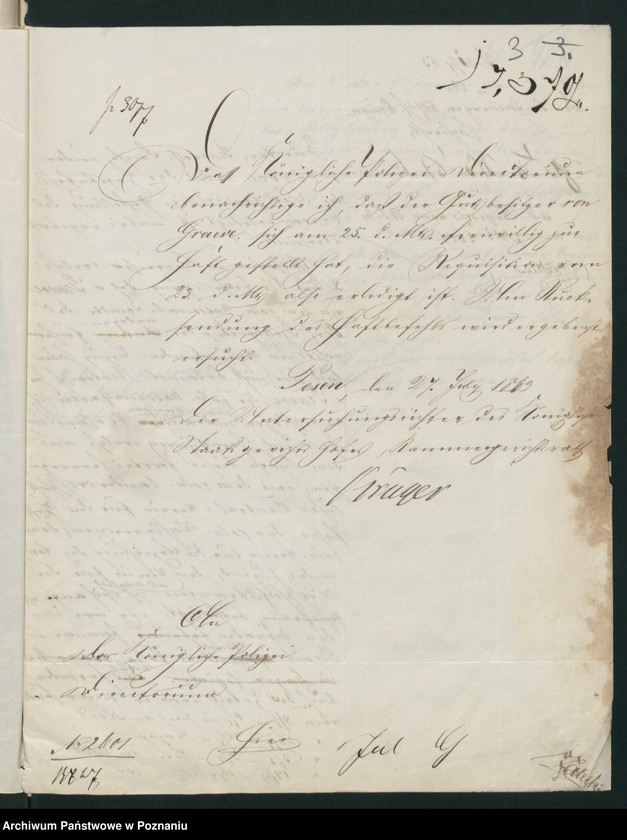 3 3.
Das Königliche Polizei Directorium
benachrichtige ich, daß der Gutsbesitzer von
Graeve sich am 25. d. Mts. freiwillig zur
Haft gestellt hat, die Requisition vom
23. d. Mts. also erledigt ist. Um Rück-
sendung des Haftbefehls wird ergebenst
ersucht.
Posen, den 27. July 1863
Der Untersuchungsrichter des Königl.
Staatsgerichtshofes, Kammergerichtsrath
Krüger
An
Das Königliche Polizei
Directorium
Hier
N. 2601
Archiwum Państwowe w Poznaniu